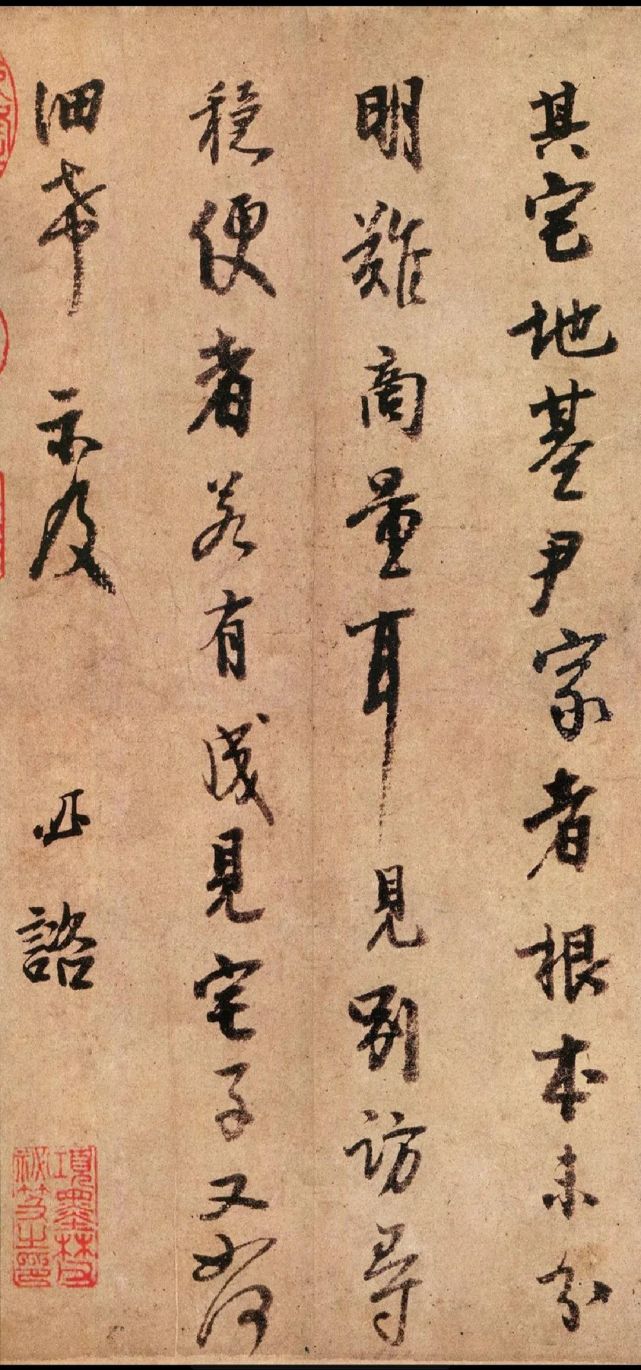 其宅地基尹家者根本未分
明難商量耳見別訪尋
穩便者若有成見宅子又如何
細希示及 諮
項墨林父
祕笈之印